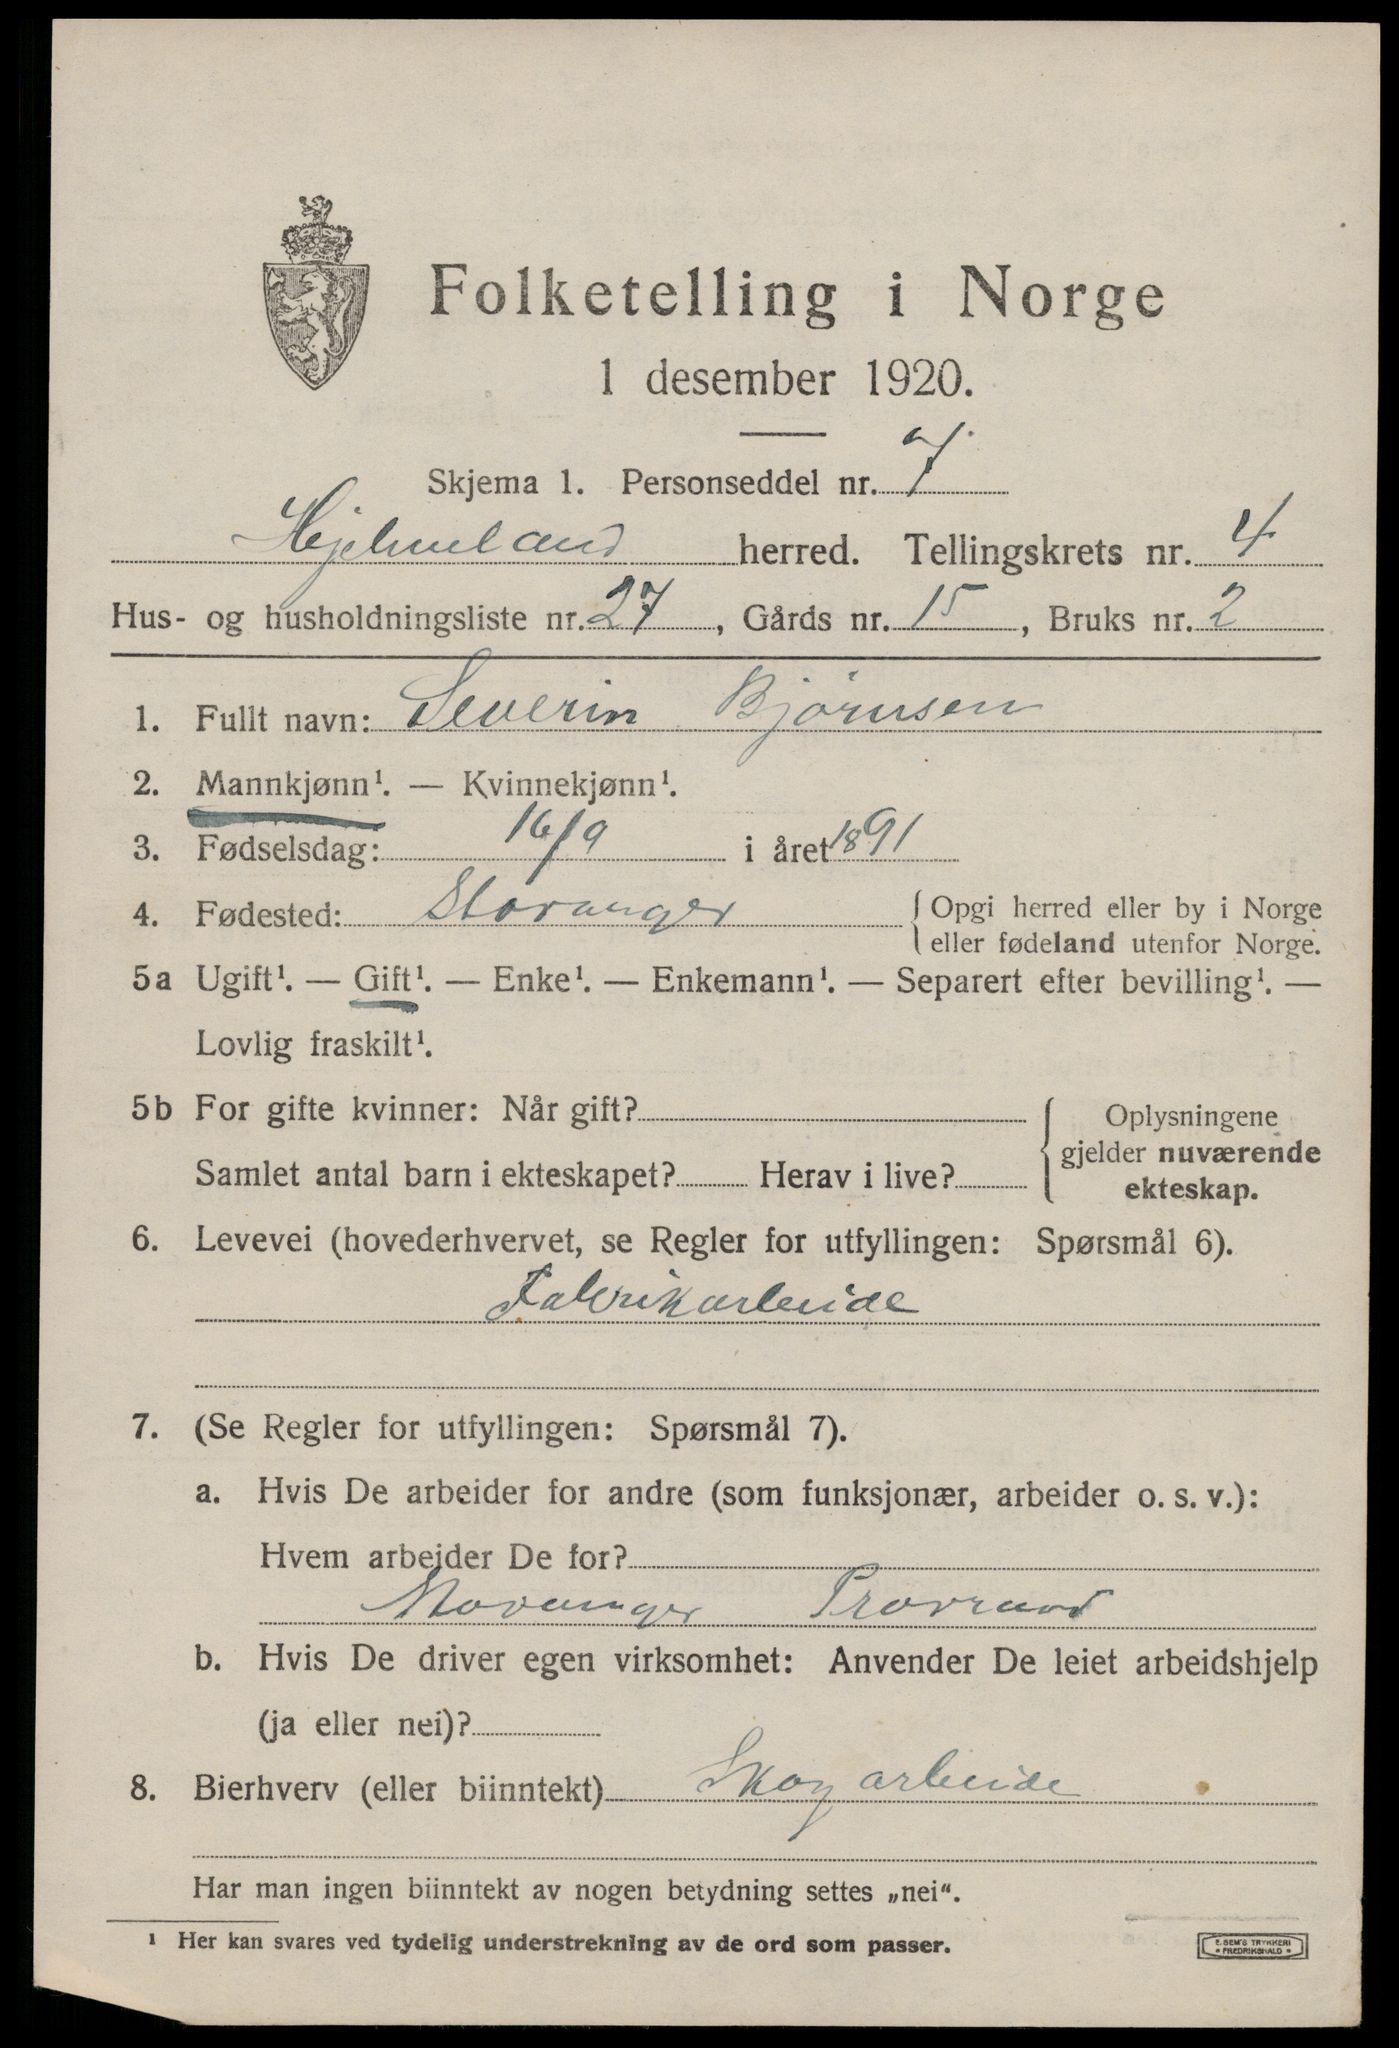 Folketelling i Norge
1 desember 1920.
Skjema 1. Personseddel nr. 7
Hjelmeland herred. Tellingskrets nr. 4
Hus- og husholdningsliste nr. 27, Gårds nr. 15, Bruks nr. 2
1. Fullt navn: Severin Bjørnsen
2. Mannkjønn¹. — Kvinnekjønn¹.
3. Fødselsdag: 16/9 i året 1891
4. Fødested: Stavanger { Opgi herred eller by i Norge
eller fødeland utenfor Norge.
5a Ugift¹. — Gift¹. — Enke¹. — Enkemann¹. — Separert efter bevilling¹. —
Lovlig fraskilt¹.
5b For gifte kvinner: Når gift? Oplysningene
gjelder nuværende
Samlet antal barn i ekteskapet? Herav i live?
ekteskap.
6. Levevei (hovederhvervet, se Regler for utfyllingen: Spørsmål 6).
Fabrikarbeide
7. (Se Regler for utfyllingen: Spørsmål 7).
a. Hvis De arbeider for andre (som funksjonær, arbeider o. s. v.):
Hvem arbeider De for?
Stavanger
b. Hvis De driver egen virksomhet: Anvender De leiet arbeidshjelp
(ja eller nei)?
8. Bierhverv (eller biinntekt) Skogarbeide
Har man ingen biinntekt av nogen betydning settes „nei“.
¹ Her kan svares ved tydelig understrekning av de ord som passer.
E. SEM'S TRYKKERI
* FREDRIKSHALD *